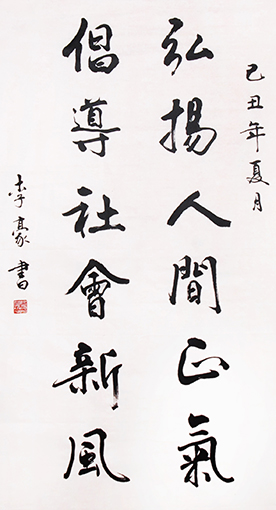 己丑年夏月
弘揚人間正氣
倡導社會新風
李豪書